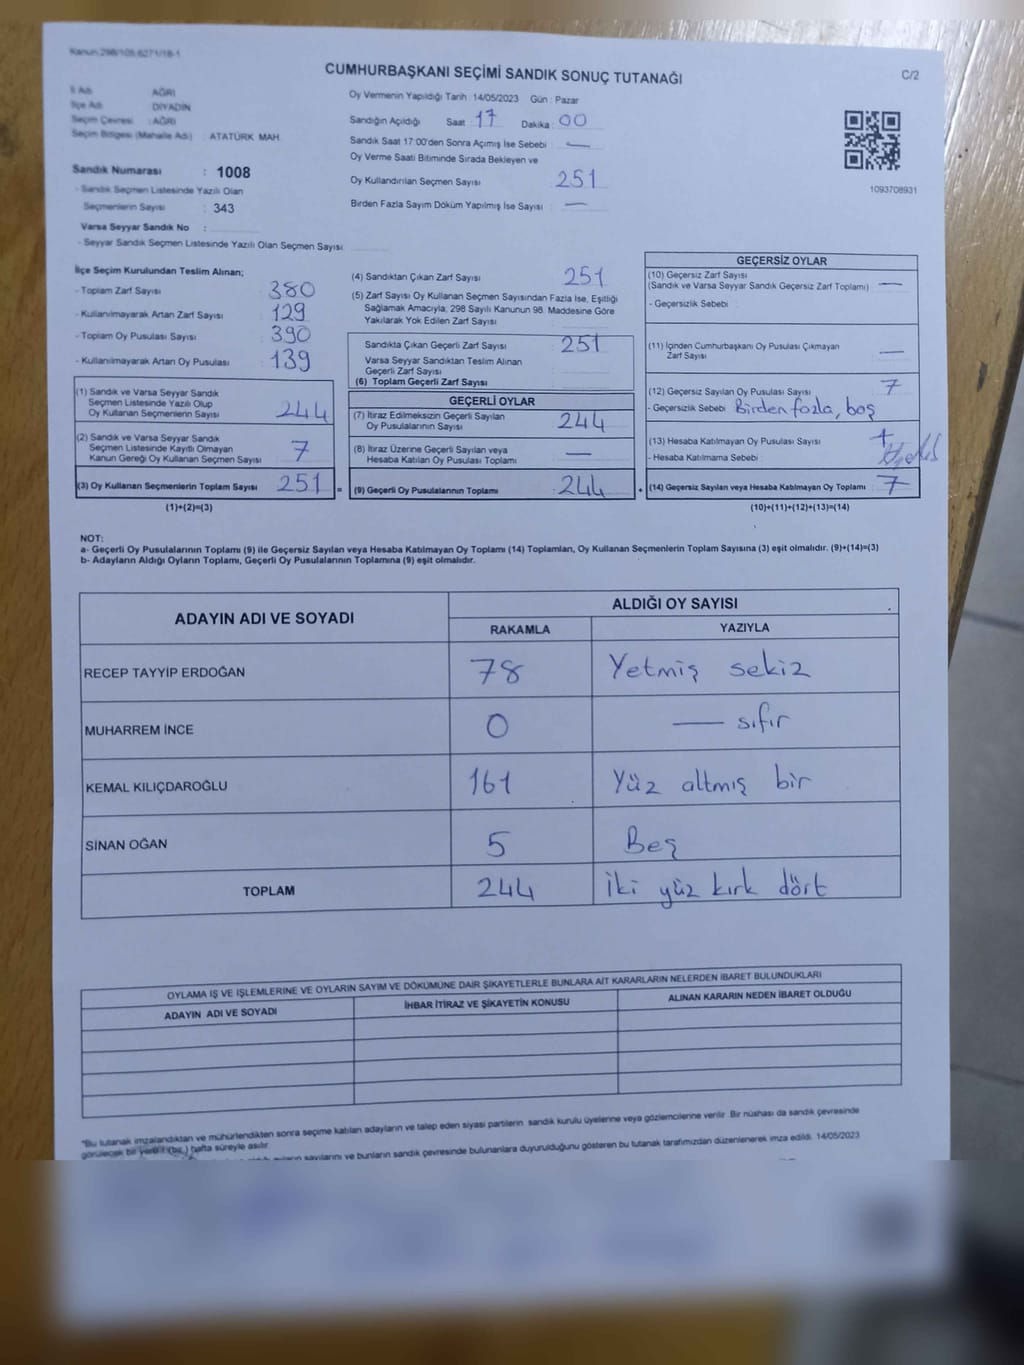 Kanun 298/105,6271/18-1
CUMHURBAŞKANI SEÇİMİ SANDIK SONUÇ TUTANAĞI
C/2
İl Adı : AĞRI
İlçe Adı : DİYADİN
Seçim Çevresi : AĞRI
Seçim Bölgesi (Mahalle Adı) : ATATÜRK MAH.
Sandık Numarası : 1008
- Sandık Seçmen Listesinde Yazılı Olan
Seçmenlerin Sayısı : 343
Varsa Seyyar Sandık No :
- Seyyar Sandık Seçmen Listesinde Yazılı Olan Seçmen Sayısı:
Oy Vermenin Yapıldığı Tarih : 14/05/2023 Gün : Pazar
Sandığın Açıldığı Saat : 17 Dakika : 00
Sandık Saat 17:00'den Sonra Açımış İse Sebebi : —
Oy Verme Saati Bitiminde Sırada Bekleyen ve
Oy Kullandırılan Seçmen Sayısı : 251
Birden Fazla Sayım Döküm Yapılmış İse Sayısı : —
1093708931
İlçe Seçim Kurulundan Teslim Alınan;
- Toplam Zarf Sayısı : 380
- Kullanılmayarak Artan Zarf Sayısı : 129
- Toplam Oy Pusulası Sayısı : 390
- Kullanılmayarak Artan Oy Pusulası : 139
(1) Sandık ve Varsa Seyyar Sandık
Seçmen Listesinde Yazılı Olup
Oy Kullanan Seçmenlerin Sayısı : 244
(2) Sandık ve Varsa Seyyar Sandık
Seçmen Listesinde Kayıtlı Olmayan
Kanun Gereği Oy Kullanan Seçmen Sayısı : 7
(3) Oy Kullanan Seçmenlerin Toplam Sayısı : 251 =
(1)+(2)=(3)
(4) Sandıktan Çıkan Zarf Sayısı : 251
(5) Zarf Sayısı Oy Kullanan Seçmen Sayısından Fazla İse, Eşitliği
Sağlamak Amacıyla, 298 Sayılı Kanunun 98. Maddesine Göre
Yakılarak Yok Edilen Zarf Sayısı :
Sandıkta Çıkan Geçerli Zarf Sayısı : 251
Varsa Seyyar Sandıktan Teslim Alınan
Geçerli Zarf Sayısı :
(6) Toplam Geçerli Zarf Sayısı :
GEÇERLİ OYLAR
(7) İtiraz Edilmeksizin Geçerli Sayılan
Oy Pusulalarının Sayısı : 244
(8) İtiraz Üzerine Geçerli Sayılan veya
Hesaba Katılan Oy Pusulası Toplamı : —
(9) Geçerli Oy Pusulalarının Toplamı : 244 +
GEÇERSİZ OYLAR
(10) Geçersiz Zarf Sayısı
(Sandık ve Varsa Seyyar Sandık Geçersiz Zarf Toplamı) : —
- Geçersizlik Sebebi :
(11) İçinden Cumhurbaşkanı Oy Pusulası Çıkmayan
Zarf Sayısı : —
(12) Geçersiz Sayılan Oy Pusulası Sayısı : 7
- Geçersizlik Sebebi : Birden fazla, boş
(13) Hesaba Katılmayan Oy Pusulası Sayısı :
- Hesaba Katılmama Sebebi :
(14) Geçersiz Sayılan veya Hesaba Katılmayan Oy Toplamı : 7
(10)+(11)+(12)+(13)=(14)
NOT:
a- Geçerli Oy Pusulalarının Toplamı (9) ile Geçersiz Sayılan veya Hesaba Katılmayan Oy Toplamı (14) Toplamları, Oy Kullanan Seçmenlerin Toplam Sayısına (3) eşit olmalıdır. (9)+(14)=(3)
b- Adayların Aldığı Oyların Toplamı, Geçerli Oy Pusulalarının Toplamına (9) eşit olmalıdır.
ADAYIN ADI VE SOYADI
ALDIĞI OY SAYISI
RAKAMLA YAZIYLA
RECEP TAYYİP ERDOĞAN 78 Yetmiş sekiz
MUHARREM İNCE 0 — sıfır
KEMAL KILIÇDAROĞLU 161 Yüz altmış bir
SİNAN OĞAN 5 Beş
TOPLAM 244 İki yüz kırk dört
OYLAMA İŞ VE İŞLEMLERİNE VE OYLARIN SAYIM VE DÖKÜMÜNE DAİR ŞİKAYETLERLE BUNLARA AİT KARARLARIN NELERDEN İBARET BULUNDUKLARI
ADAYIN ADI VE SOYADI İHBAR İTİRAZ VE ŞİKAYETİN KONUSU ALINAN KARARIN NEDEN İBARET OLDUĞU
"Bu tutanak imzalandıktan ve mühürlendikten sonra seçime katılan adayların ve talep eden siyasi partilerin sandık kurulu üyelerine veya gözlemcilerine verilir. Bir nüshası da sandık çevresinde
görülecek bir yere 1 (bir) hafta süreyle asılır.
sayılarını ve bunların sandık çevresinde bulunanlara duyurulduğunu gösteren bu tutanak tarafımızdan düzenlenerek imza edildi. 14/05/2023